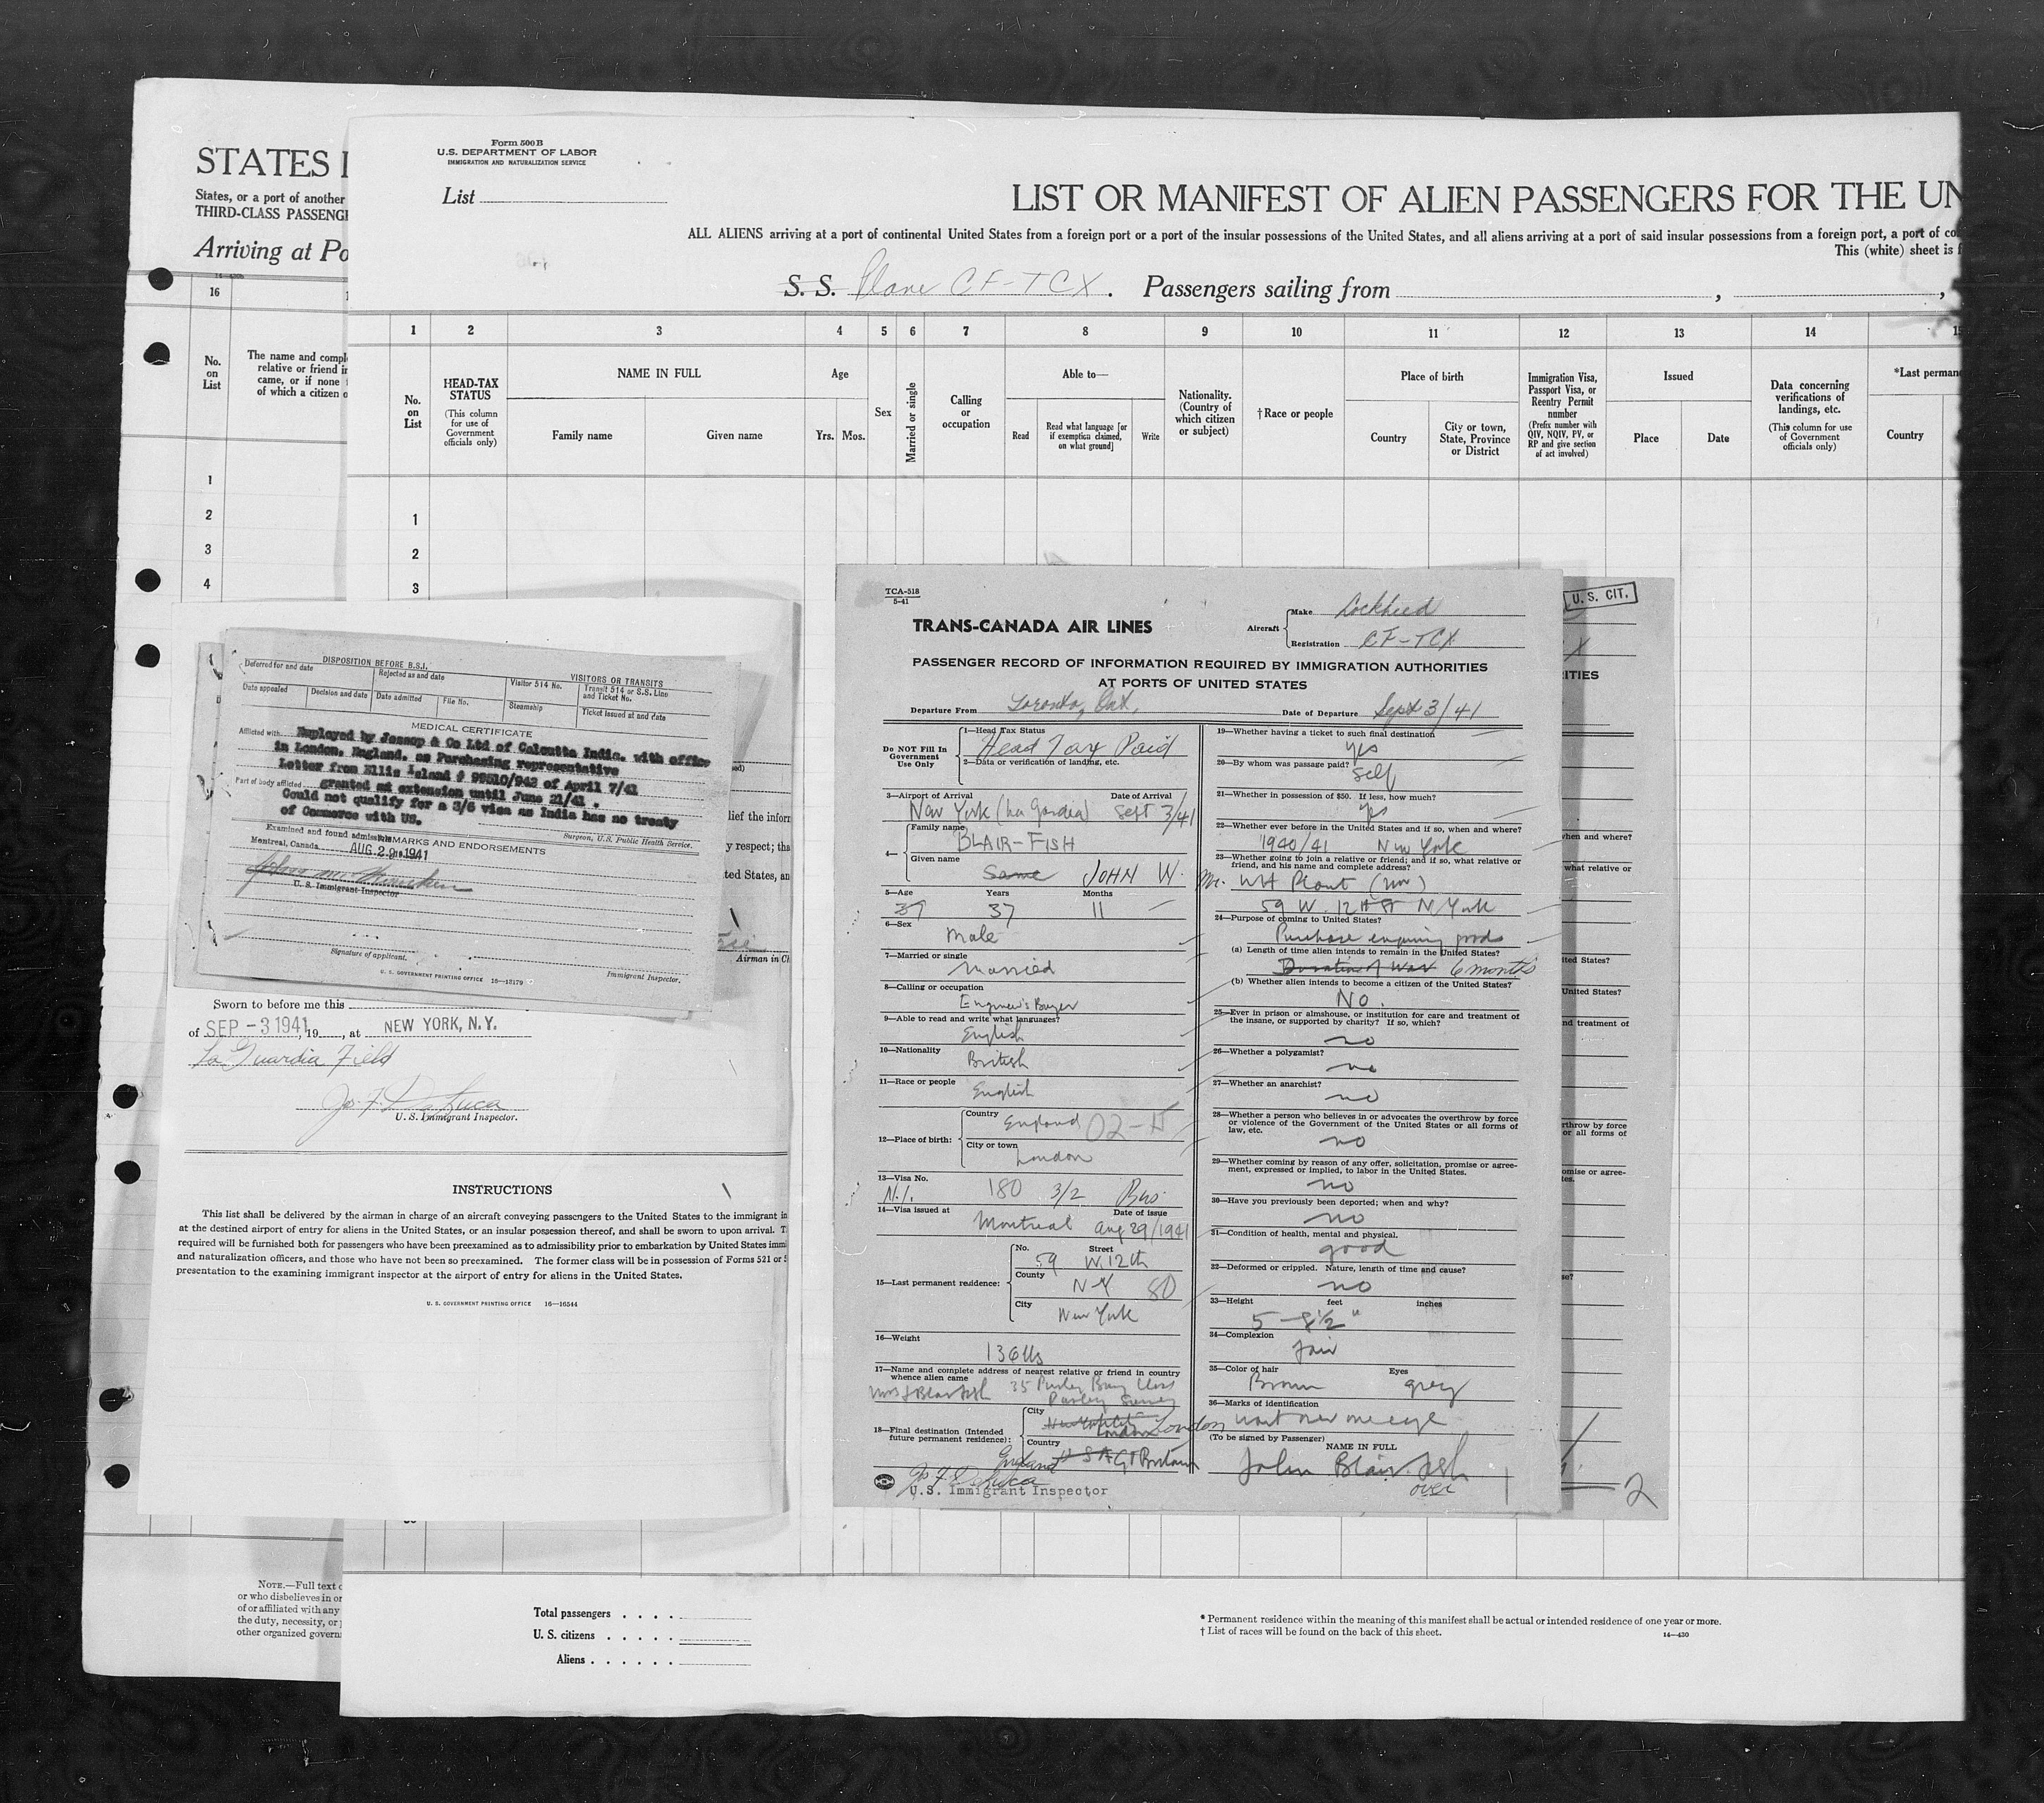 STATES
States, or a port of another
THIRD-CLASS PASSENG
Arriving at Po
16
No.
on
List
The name and compl
relative or friend in
came, or if none
of which a citizen o
1
2
3
4
Form 500 B
U.S. DEPARTMENT OF LABOR
IMMIGRATION AND NATURALIZATION SERVICE
List
LIST OR MANIFEST OF ALIEN PASSENGERS FOR THE UN
ALL ALIENS arriving at a port of continental United States from a foreign port or a port of the insular possessions of the United States, and all aliens arriving at a port of said insular possessions from a foreign port, a port of co
This (white) sheet is f
S. S. Plane CF-TCX. Passengers sailing from
1 2 3 4 5 6 7 8 9 10 11 12 13 14 15
No.
on
List
HEAD-TAX
STATUS
(This column
for use of
Government
officials only)
NAME IN FULL
Family name Given name
Age
Yrs. Mos.
Sex
Married or single
Calling
or
occupation
Able to—
Read
Read what language [or
if exemption claimed,
on what ground]
Write
Nationality.
(Country of
which citizen
or subject)
†Race or people
Place of birth
Country
City or town,
State, Province
or District
Immigration Visa,
Passport Visa, or
Reentry Permit
number
(Prefix number with
QIV, NQIV, PV, or
RP and give section
of act involved)
Issued
Place Date
Data concerning
verifications of
landings, etc.
(This column for use
of Government
officials only)
*Last perman
Country
1
2
3
DISPOSITION BEFORE B.S.I.
Deferred for and date
Rejected as and date
VISITORS OR TRANSITS
Visitor 514 No.
Transit 514 or S.S. Line
and Ticket No.
Date appealed
Decision and date
Date admitted
File No.
Steamship
Ticket issued at and date
MEDICAL CERTIFICATE
Afflicted with
Employed by Jessop & Co Ltd of Calcutta India. with office
in London, England. as Purchasing representative
Letter from Ellis Island # 99510/942 of April 7/41
Part of body afflicted
granted an extension until June 21/41 .
Could not qualify for a 3/6 visa as India has no treaty
of Commerce with US.
Surgeon, U.S. Public Health Service.
Examined and found admissible
REMARKS AND ENDORSEMENTS
Montreal, Canada AUG 29 1941
U. S. Immigrant Inspector
Signature of applicant.
Immigrant Inspector.
U. S. GOVERNMENT PRINTING OFFICE 16—13179
lief the inform
y respect; tha
ted States, an
Airman in Ch
Sworn to before me this
of SEP -3 1941, 19, at NEW YORK, N.Y.
La Guardia Field
Jo. F. DeLuca
U. S. Immigrant Inspector.
INSTRUCTIONS
This list shall be delivered by the airman in charge of an aircraft conveying passengers to the United States to the immigrant in
at the destined airport of entry for aliens in the United States, or an insular possession thereof, and shall be sworn to upon arrival. T
required will be furnished both for passengers who have been preexamined as to admissibility prior to embarkation by United States immi
and naturalization officers, and those who have not been so preexamined. The former class will be in possession of Forms 521 or 5
presentation to the examining immigrant inspector at the airport of entry for aliens in the United States.
U. S. GOVERNMENT PRINTING OFFICE 16—16544
TCA-518
5-41
TRANS-CANADA AIR LINES
Aircraft
Make Lockheed
Registration CF-TCX
PASSENGER RECORD OF INFORMATION REQUIRED BY IMMIGRATION AUTHORITIES
AT PORTS OF UNITED STATES
Departure From Toronto, Ont.
Date of Departure Sept 3/41
Do NOT Fill In
Government
Use Only
1—Head Tax Status
Head Tax Paid
2—Data or verification of landing, etc.
3—Airport of Arrival Date of Arrival
New York (La Gardia) Sept 3/41
4—
Family name
BLAIR-FISH
Given name
Same JOHN W.
5—Age Years Months
37 37 11
6—Sex
Male
7—Married or single
Married
8—Calling or occupation
Engineer's Buyer
9—Able to read and write what languages?
English
10—Nationality
British
11—Race or people
English
12—Place of birth:
Country
England
City or town
London
13—Visa No.
N.I. 180 3/2 Bus.
14—Visa issued at Date of issue
Montreal Aug 29/1941
15—Last permanent residence:
No. Street
59 W. 12th
County
N-Y 80
City
New York
16—Weight
136 lbs
17—Name and complete address of nearest relative or friend in country
whence alien came
Mrs J Blair Fish 35
18—Final destination (Intended
future permanent residence):
City
London London
Country
England U S A Gt Britain
Jo F. DeLuca
U.S. Immigrant Inspector
19—Whether having a ticket to such final destination
yes
20—By whom was passage paid?
self
21—Whether in possession of $50. If less, how much?
yes
22—Whether ever before in the United States and if so, when and where?
1940/41 New York
23—Whether going to join a relative or friend; and if so, what relative or
friend, and his name and complete address?
Mr. WH Plant
59 W. 12th St N. York
24—Purpose of coming to United States?
Purchase enquiring goods
(a) Length of time alien intends to remain in the United States?
Duration of War 6 months
(b) Whether alien intends to become a citizen of the United States?
No.
25—Ever in prison or almshouse, or institution for care and treatment of
the insane, or supported by charity? If so, which?
no
26—Whether a polygamist?
no
27—Whether an anarchist?
no
28—Whether a person who believes in or advocates the overthrow by force
or violence of the Government of the United States or all forms of
law, etc.
no
29—Whether coming by reason of any offer, solicitation, promise or agree-
ment, expressed or implied, to labor in the United States.
no
30—Have you previously been deported; when and why?
no
31—Condition of health, mental and physical.
good
32—Deformed or crippled. Nature, length of time and cause?
no
33—Height feet inches
5 - 8 1/2 "
34—Complexion
fair
35—Color of hair Eyes
Brown grey
36—Marks of identification
wart over one eye
(To be signed by Passenger)
NAME IN FULL
John Blair Fish
over
U. S. CIT.
X
ITIES
hen and where?
what relative or
ited States?
United States?
nd treatment of
rthrow by force
or all forms of
omise or agree-
tes.
se?
2
NOTE.—Full text o
or who disbelieves in or
of or affiliated with any
the duty, necessity, or p
other organized govern
Total passengers
U. S. citizens
Aliens
* Permanent residence within the meaning of this manifest shall be actual or intended residence of one year or more.
† List of races will be found on the back of this sheet.
14—430